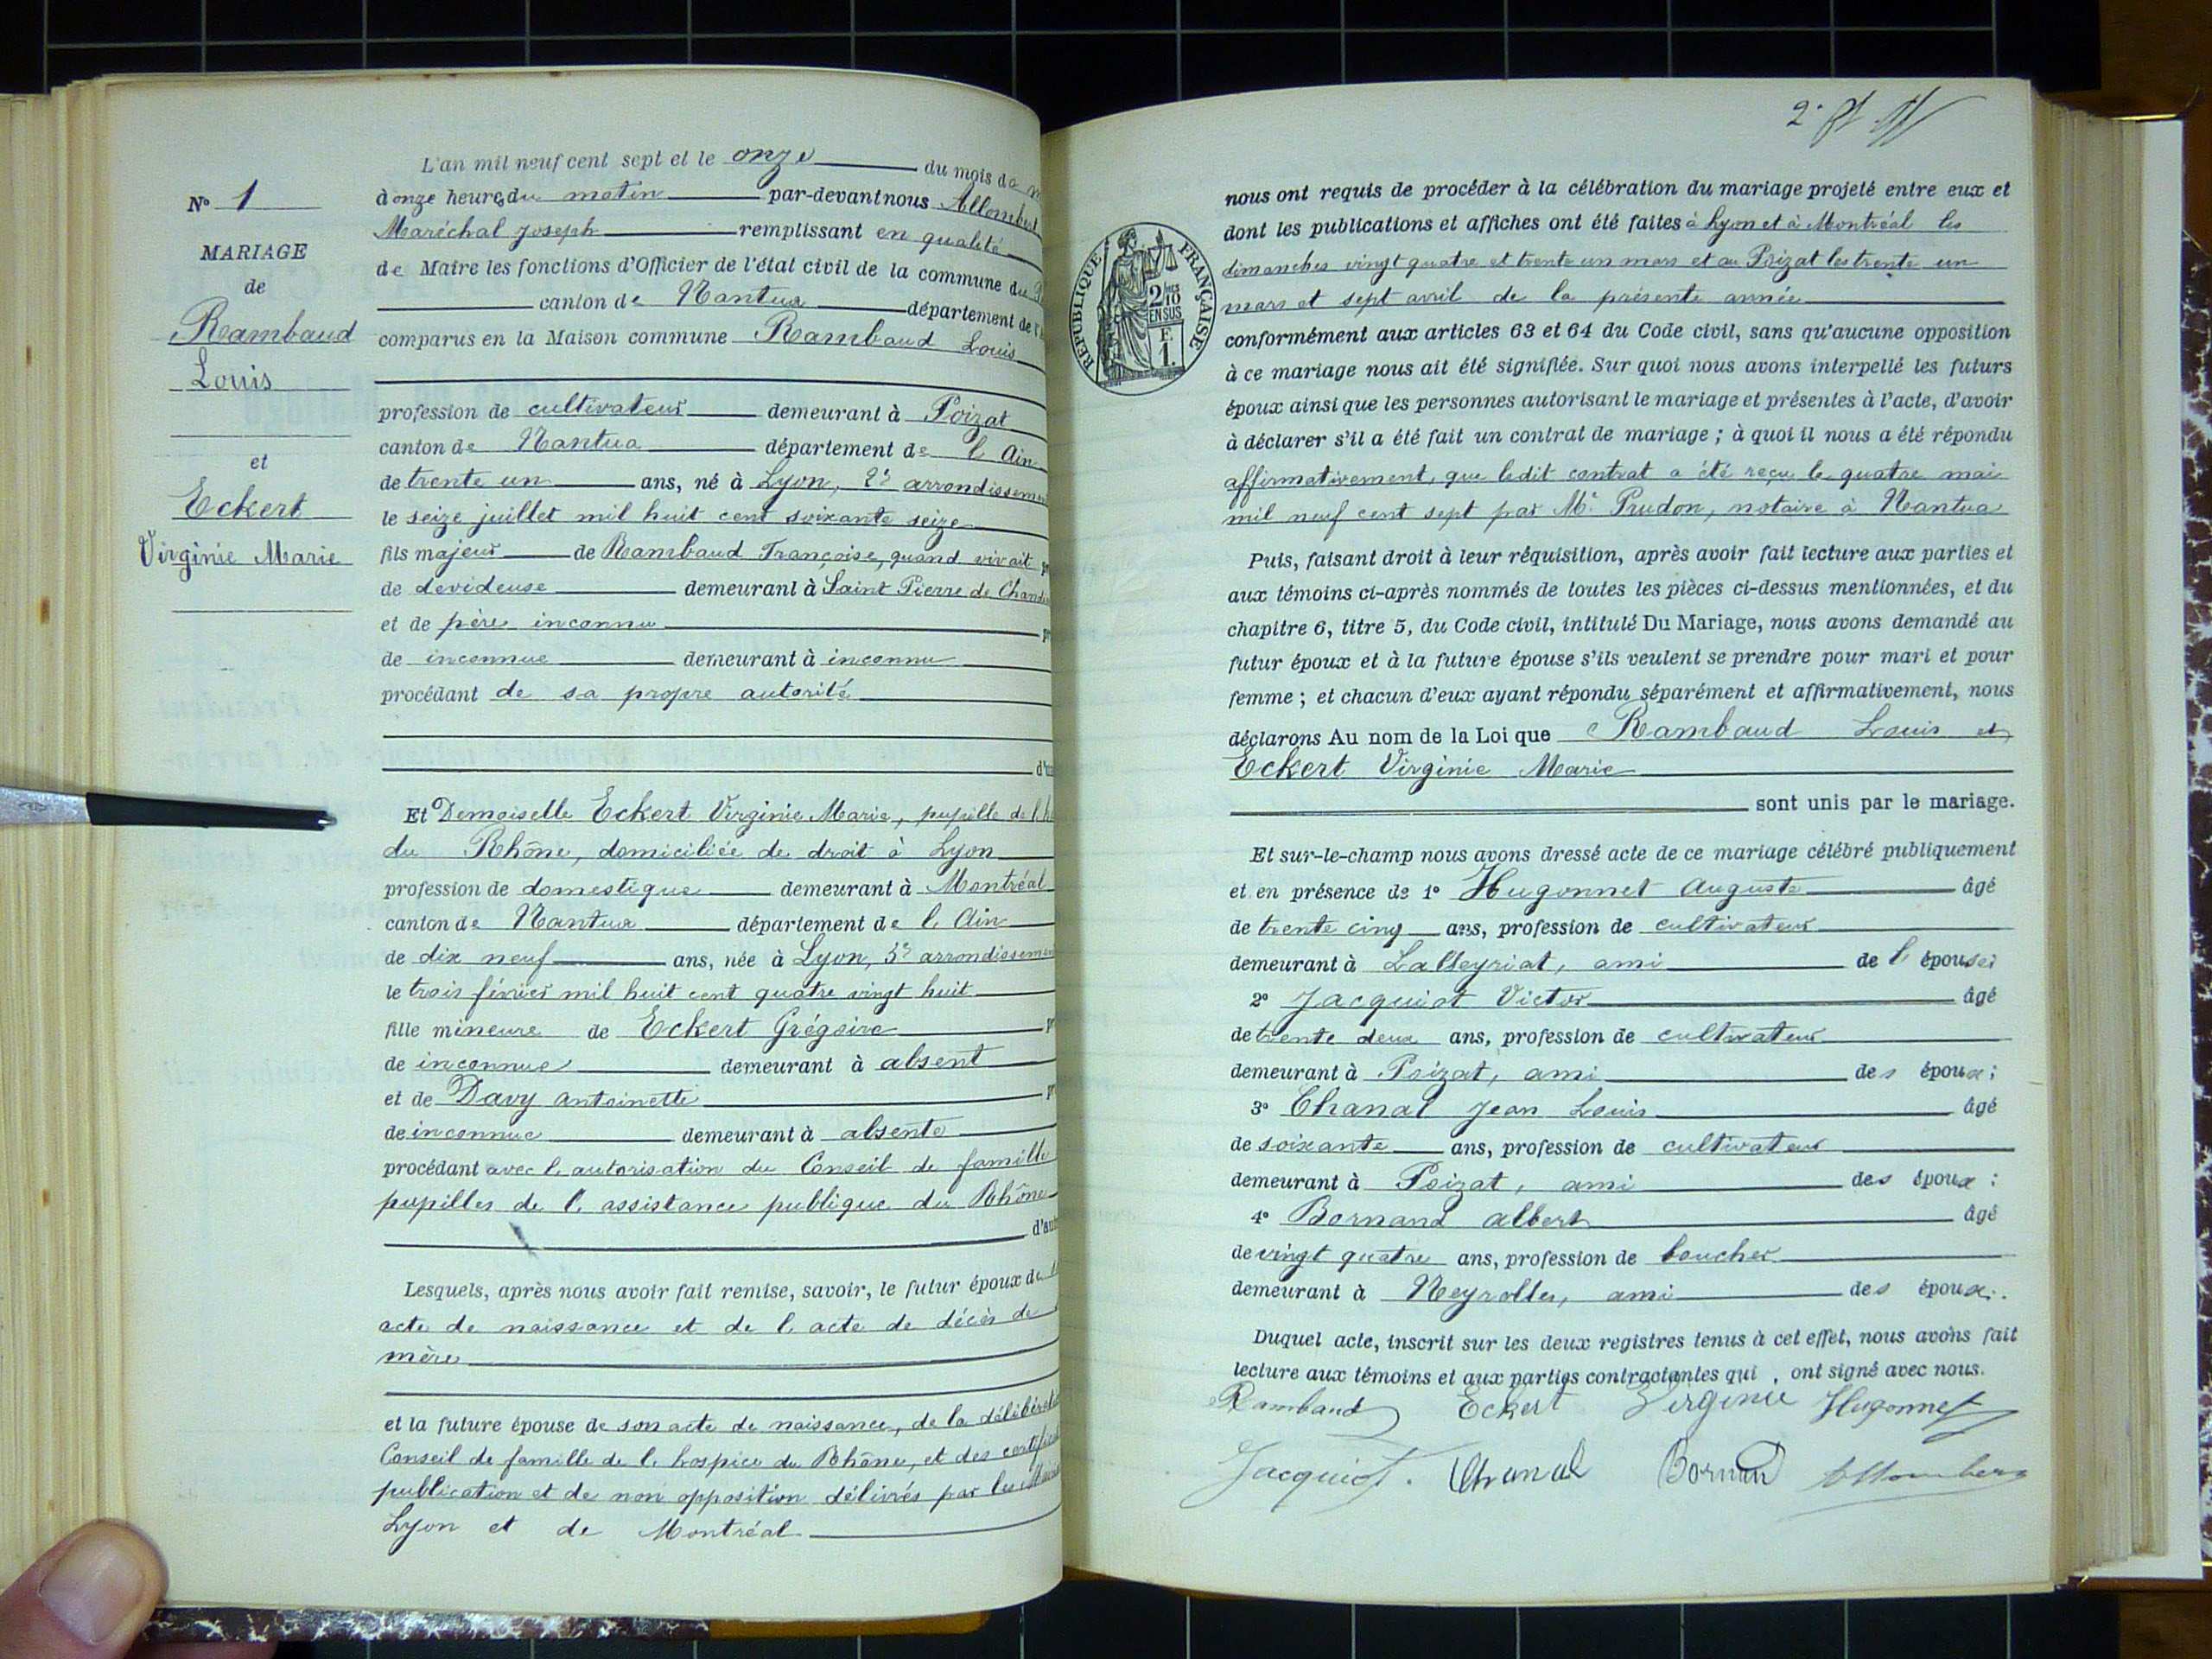 L'an mil neuf cent sept et le onze du mois de
à onze heures du matin par-devant nous Allombert
Maréchal Joseph remplissant en qualité
de Maire les fonctions d'Officier de l'état civil de la commune du
canton de Nantua département de l'
comparus en la Maison commune Rambaud Louis
profession de cultivateur demeurant à Poizat
canton de Nantua département de l'Ain
de trente un ans, né à Lyon, 2e arrondissement
le seize juillet mil huit cent soixante seize
fils majeur de Rambaud Françoise, quand vivait
de devideuse demeurant à Saint Pierre de
et de père inconnu
de inconnue demeurant à inconnu
procédant de sa propre autorité
Et Demoiselle Eckert Virginie Marie, pupille de l'
du Rhône, domiciliée de droit à Lyon
profession de domestique demeurant à Montréal
canton de Nantua département de l'Ain
de dix neuf ans, née à Lyon, arrondissement
le trois février mil huit cent quatre vingt huit
fille mineure de Eckert Grégoire
de inconnue demeurant à absent
et de Davy Antoinette
de inconnue demeurant à absente
procédant avec l'autorisation du Conseil de famille
pupilles de l'assistance publique du Rhône
Lesquels, après nous avoir fait remise, savoir, le futur époux de
acte de naissance et de l'acte de décès de
mère
et la future épouse de son acte de naissance, de la
Conseil de famille de l'hospice du Rhône, et des
publication et de non opposition délivrés par les
Lyon et de Montréal
N° 1
MARIAGE
de
Rambaud
Louis
et
Eckert
Virginie Marie
2e
RÉPUBLIQUE FRANÇAISE
2/10
EN SUS
E
1.
nous ont requis de procéder à la célébration du mariage projeté entre eux et
dont les publications et affiches ont été faites à Lyon et à Montréal les
dimanches vingt quatre et trente un mars et au Poizat les trente un
mars et sept avril de la présente année
conformément aux articles 63 et 64 du Code civil, sans qu'aucune opposition
à ce mariage nous ait été signifiée. Sur quoi nous avons interpellé les futurs
époux ainsi que les personnes autorisant le mariage et présentes à l'acte, d'avoir
à déclarer s'il a été fait un contrat de mariage ; à quoi il nous a été répondu
affirmativement, que ledit contrat a été reçu le quatre mai
mil neuf cent sept par Me Prudon, notaire à Nantua
Puis, faisant droit à leur réquisition, après avoir fait lecture aux parties et
aux témoins ci-après nommés de toutes les pièces ci-dessus mentionnées, et du
chapitre 6, titre 5, du Code civil, intitulé Du Mariage, nous avons demandé au
futur époux et à la future épouse s'ils veulent se prendre pour mari et pour
femme ; et chacun d'eux ayant répondu séparément et affirmativement, nous
déclarons Au nom de la Loi que Rambaud Louis et
Eckert Virginie Marie
sont unis par le mariage.
Et sur-le-champ nous avons dressé acte de ce mariage célébré publiquement
et en présence de 1° Hugonnet Auguste âgé
de trente cinq ans, profession de cultivateur
demeurant à Lalleyriat, ami de l'épouse;
2° Jacquiot Victor âgé
de trente deux ans, profession de cultivateur
demeurant à Poizat, ami des époux;
3° Chanal Jean Louis âgé
de soixante ans, profession de cultivateur
demeurant à Poizat, ami des époux :
4° Bornand Albert âgé
de vingt quatre ans, profession de boucher
demeurant à Neyrolles, ami des époux.
Duquel acte, inscrit sur les deux registres tenus à cet effet, nous avons fait
lecture aux témoins et aux parties contractantes qui , ont signé avec nous.
Rambaud Eckert Virginie Hugonnet
Jacquiot. Chanal Bornand Allombert